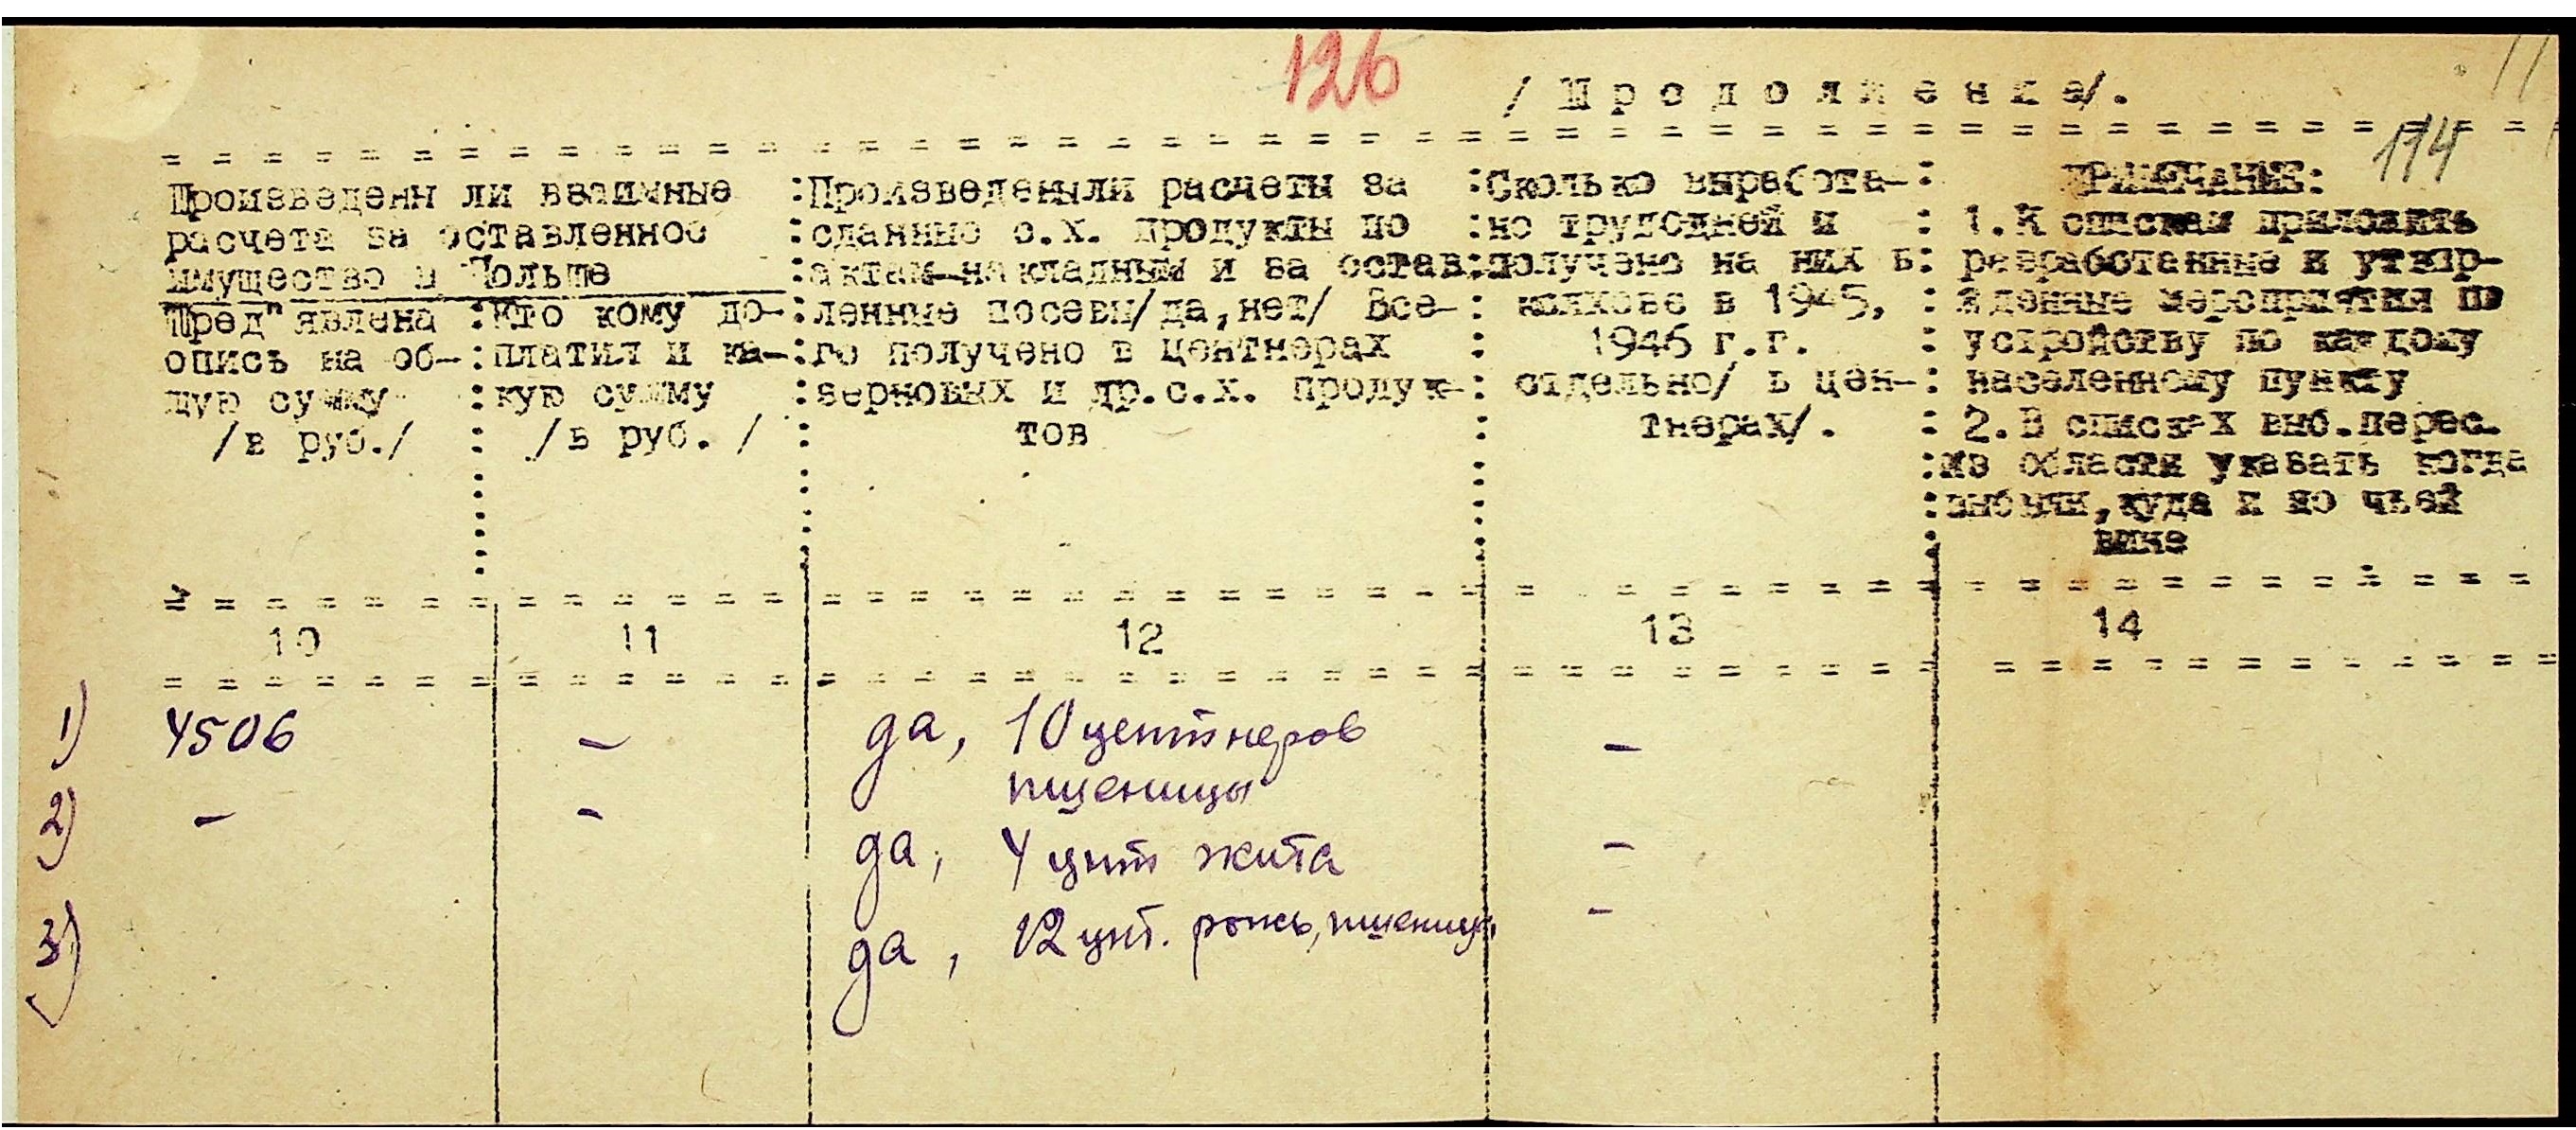 126
/ П р о д о л ж е н и е/.
114
Произведены ли взаимные
расчета за оставленное
имущество в Польше
Пред"явлена
опись на об-
щую сумму
/в руб./
кто кому до-
платил и ка-
кую сумму
/в руб. /
Произведены ли расчеты за
сданные с.х. продукты по
актам-накладным и за остав-
ленные посевы/да,нет/ Все-
го получено в центнерах
зерновых и др.с.х. продук-
тов
Сколько выработа-
но трудодней и
получено на них в
колхозе в 1945,
1946 г.г.
отдельно/ в цен-
тнерах/.
ПРИМЕЧАНИЕ:
1.К спискам приложить
разработанные и утвер-
жденные мероприятия по
устройству по каждому
населенному пункту
2.В списках выб.перес.
из области указать когда
выбыли,куда и по чьей
вине
10 11 12 13 14
1) 4506 - да, 10 центнеров -
пшеницы
2) - - да, 4 цнт жита -
3) да, 12 цнт. рожь, пшениця -